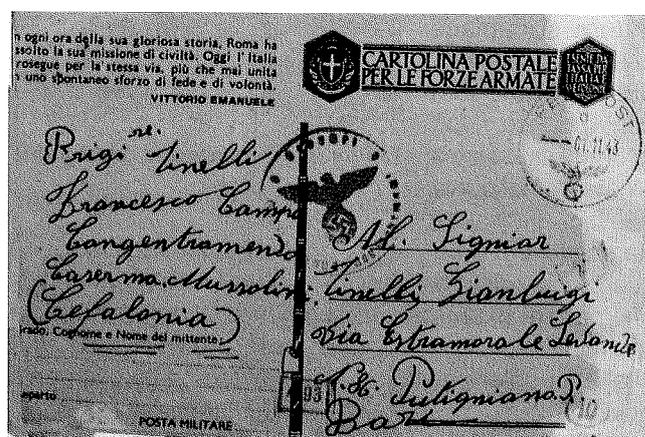 n ogni ora della sua gloriosa storia, Roma ha
ssolto la sua missione di civiltà. Oggi l'Italia
rosegue per la stessa via, più che mai unita
n uno spontaneo sforzo di fede e di volontà.
VITTORIO EMANUELE
CARTOLINA POSTALE
PER LE FORZE ARMATE
Prigi re. Tinelli
Francesco Campo
Congentramento
Caserma. Mussolini
(Cefalonia)
rado, Cognome e Nome del mittente
eparto
POSTA MILITARE
11.43
Al. Signiar
Tinelli Gianluigi
Via Estramorale
Putigniano. P.
Bari